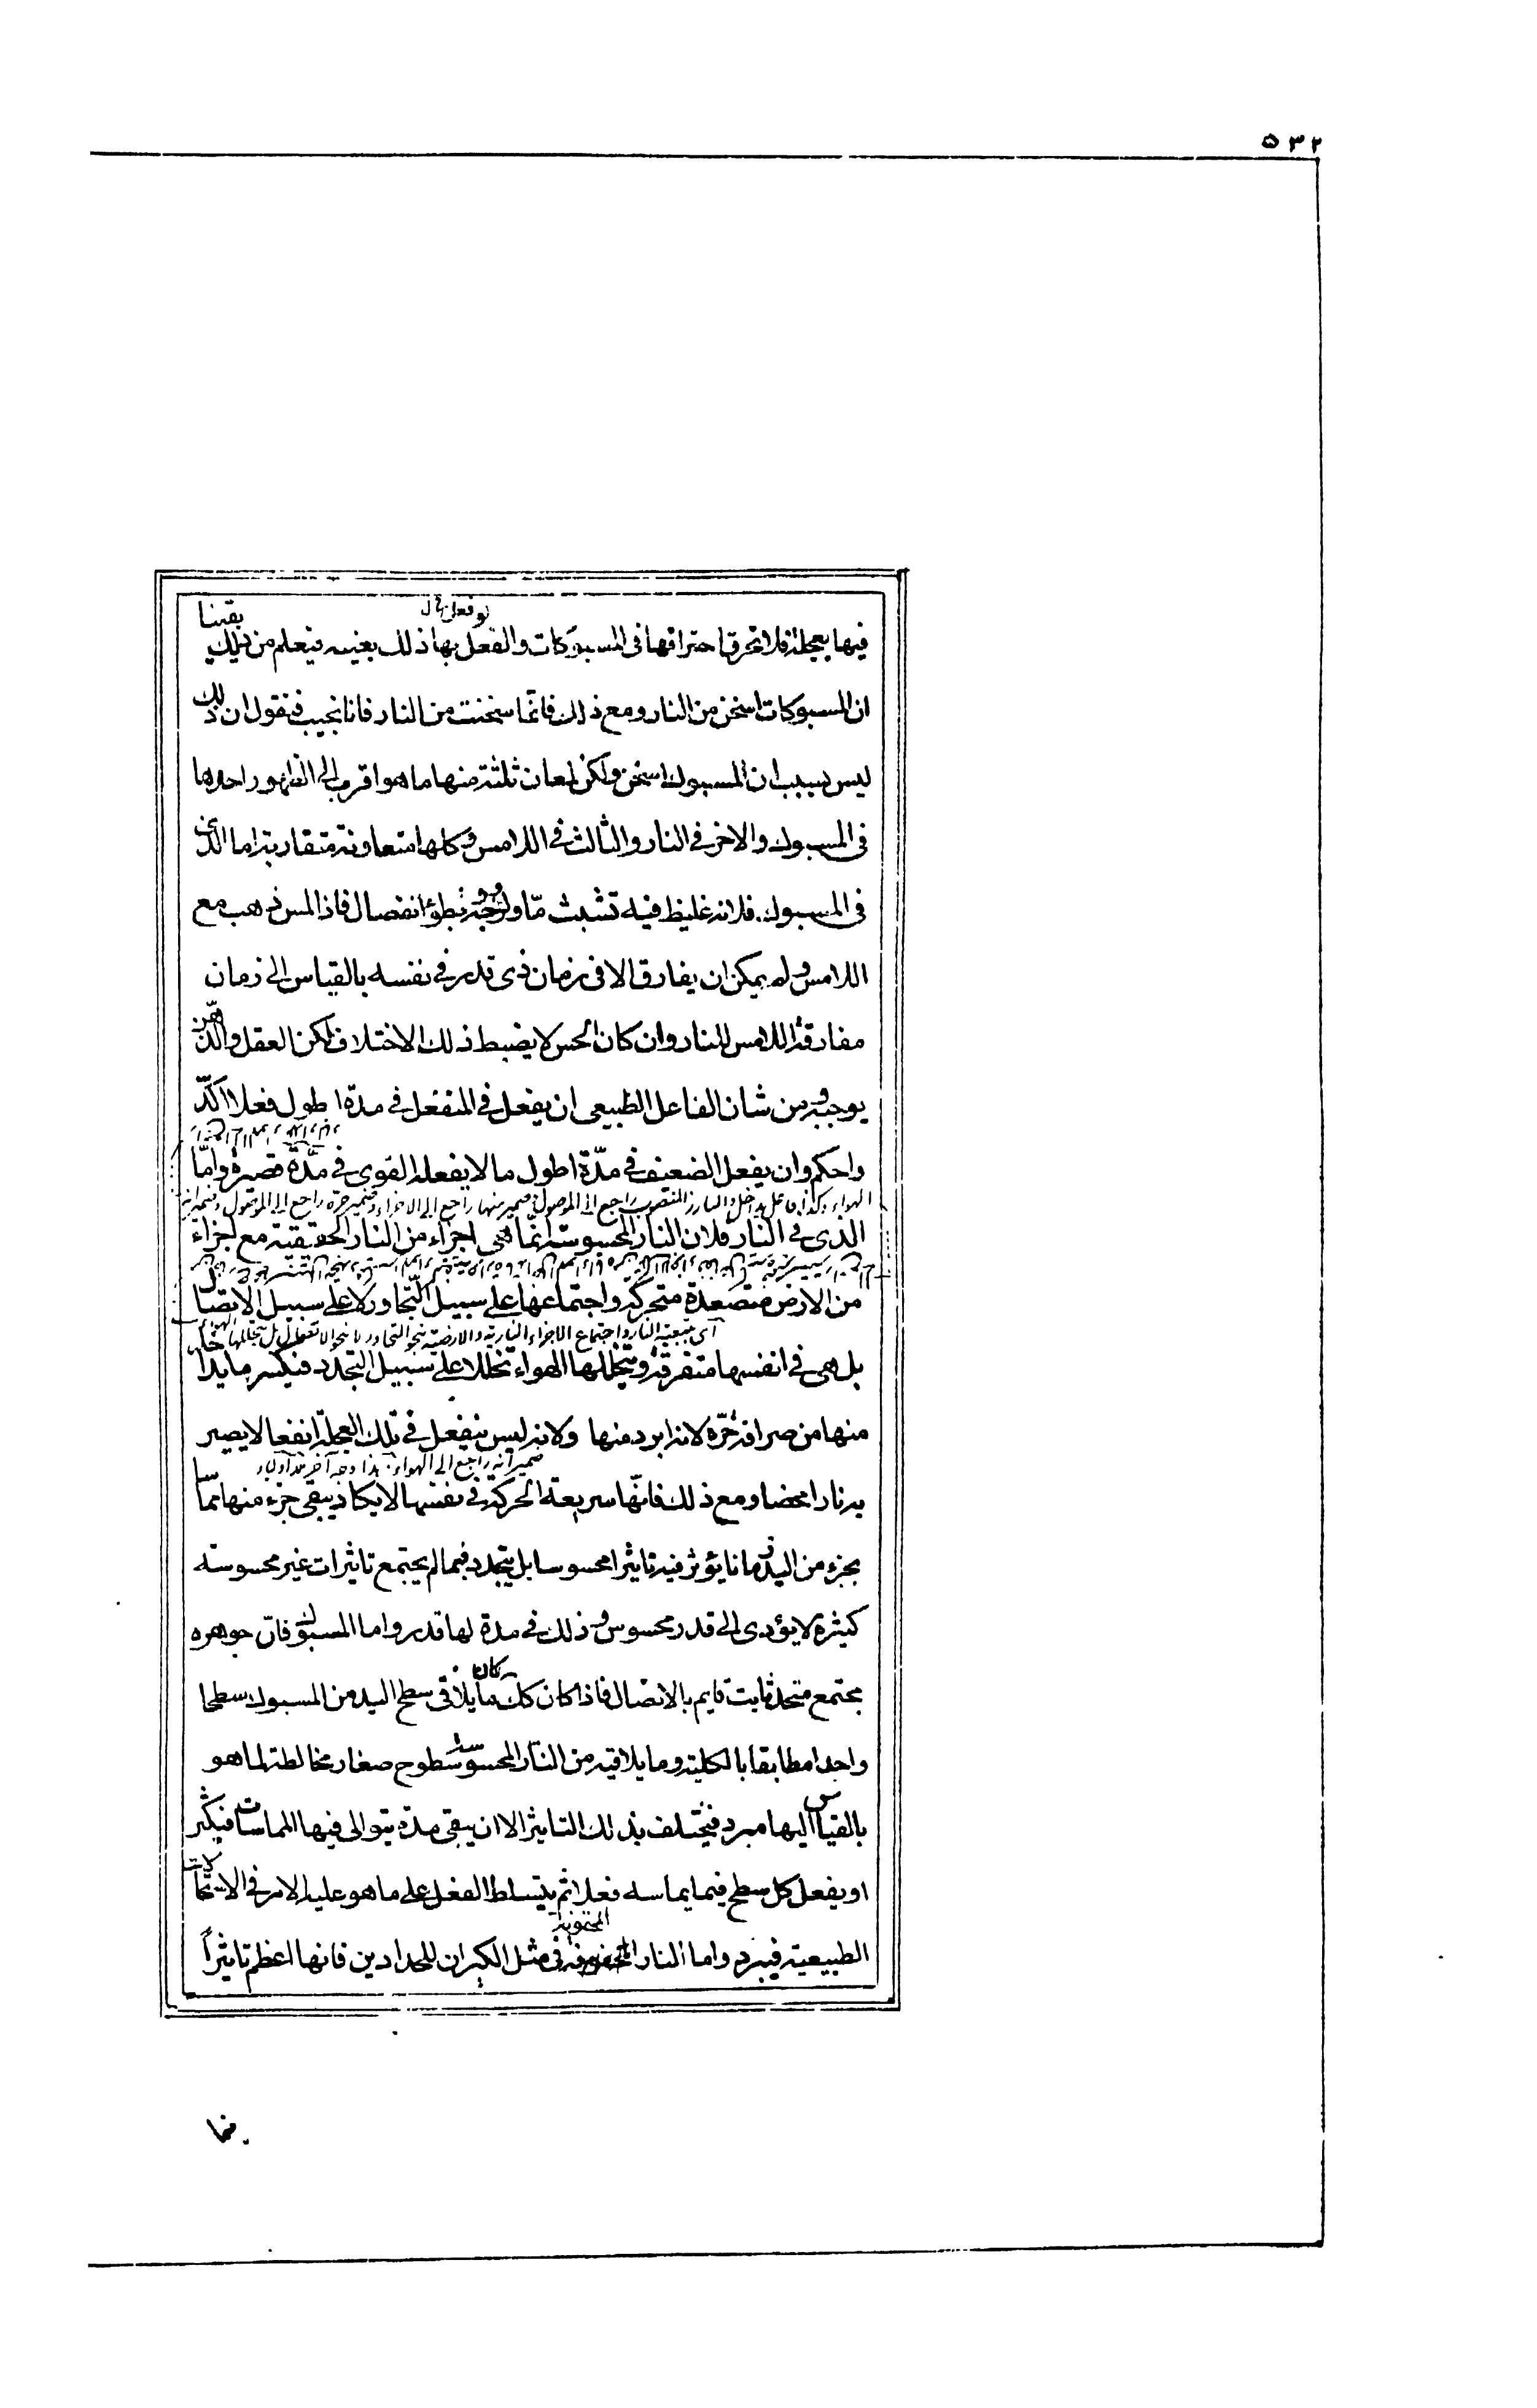 ٥٣٢
فيها بعجلة فلا تحرق احتراقها فى المسبوكات والفعل بها ذلك بعينه فيعلم من ذلك يقينا
ان المسبوكات اسخن من النار ومع ذلك فانما سخنت من النار فانا نجيب فنقول ان ذلك
ليس بسبب ان المسبوك اسخن ولكن لمعان ثلثة منها ما هو اقرب الى الظهور احدها
فى المسبوك والاخر فى النار والثالث فى اللامس وكلها متعاونة متقاربة اما الذى
فى المسبوك فلانه غليظ فيه تشبث ما ولزوجة وبطؤ انفصال فاذا لمس ذهب مع
اللامس ولم يمكن ان يفارق الا فى زمان ذى قدر فى نفسه بالقياس الى زمان
مفارقة اللامس للنار وان كان الحس لا يضبط ذلك الاختلاف لكن العقل والذهن
يوجبه ومن شان الفاعل الطبيعى ان يفعل فى المنفعل فى مدة اطول فعلا اكد
واحكم وان يفعل الضعيف فى مدة اطول ما لا يفعله القوى فى مدة قصيرة واما
الذى فى النار فلان النار المحسوسة انما هى اجزاء من النار الحقيقية مع اجزاء
من الارض متصعدة متحركة واجتماعها على سبيل التجاور لا على سبيل الاتصال
اى حقيقة النار واجتماع الاجزاء النارية والارضية بنحو التجاور لا بنحو الاتصال بل يتخللها الهواء
بل هى فى انفسها متفرقة ويتخللها الهواء تخللا على سبيل التجدد فيكسر ما يداخله
منها من صرافة حره لانه ابرد منها ولانه ليس ينفعل فى تلك العجلة انفعالا يصير
ضمير انه راجع الى الهواء
به نارا محضا ومع ذلك فانها سريعة الحركة فى نفسها لا يكاد يبقى جزء منها مماسا
بجزء من اليد زمانا يؤثر فيه تاثيرا محسوسا بل يتجدد فما لم يجتمع تاثيرات غير محسوسة
كثيرة لا يؤدى الى قدر محسوس وذلك فى مدة لها قدر واما المسبوك فان جوهره
مجتمع متحد ثابت قايم بالاتصال فاذا كان كك كان ما يلاقى سطح اليد من المسبوك سطحا
واحدا مطابقا بالكلية وما يلاقيه من النار المحسوسة سطوح صغار مخالطة لما هو
بالقياس اليها مبرد فيختلف بذلك التاثير الا ان يبقى مدة يتوالى فيها المماسات فيكثر
او يفعل كل سطح فيما يماسه فعلا ثم يتسلط الفعل على ما هو عليه الامر فى الاستحالات
الطبيعية فيبرد واما النار المحقونة فى مثل الكيران للحدادين فانها اعظم تاثيراً